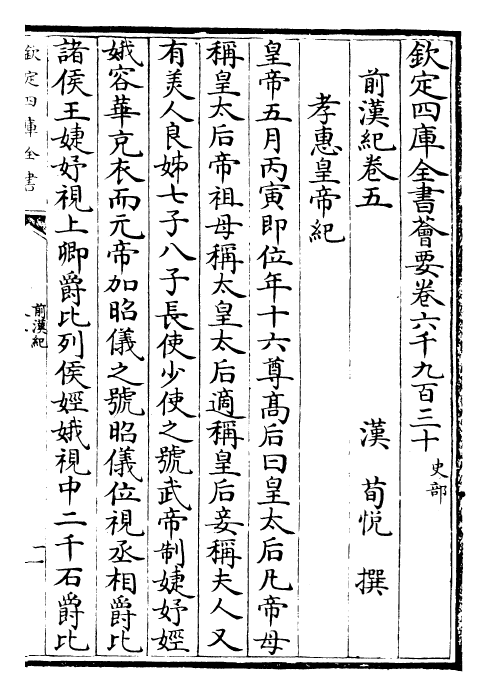 欽定四庫全書薈要卷六千九百三十 史部
前漢紀卷五 漢 荀悅 撰
孝惠皇帝紀
皇帝五月丙寅即位年十六尊髙后曰皇太后凡帝母
稱皇太后帝祖母稱太皇太后適稱皇后妾稱夫人又
有美人良姊七子八子長使少使之號武帝制婕妤娙
娥容華充衣而元帝加昭儀之號昭儀位視丞相爵比
諸侯王婕妤視上卿爵比列侯娙娥視中二千石爵比
欽定四庫全書
前漢紀